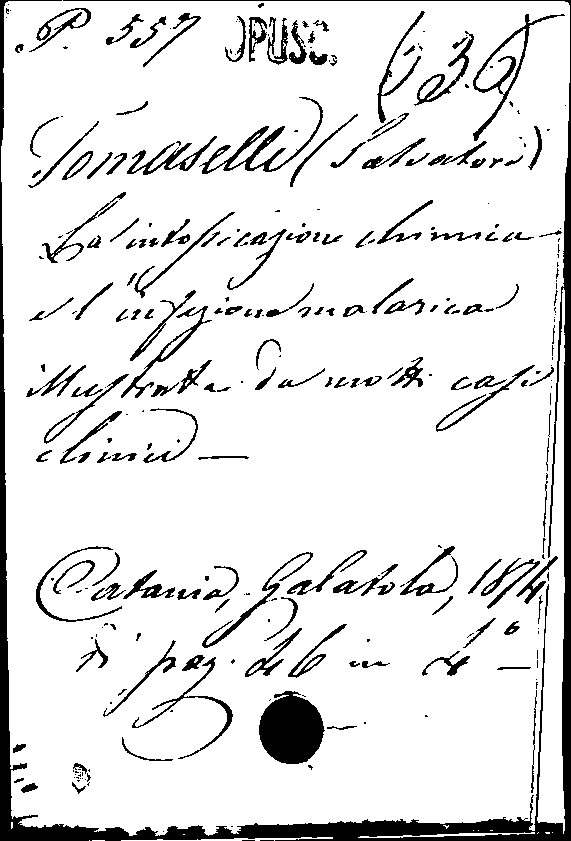 P. 557 OPUSC. (36)
Tomaselli (Salvatore)
La intossicazione chinica
e l'infezione malarica
illustrata da molti casi
clinici —
Catania, Galatola, 1874
di pag. 46 in 4°